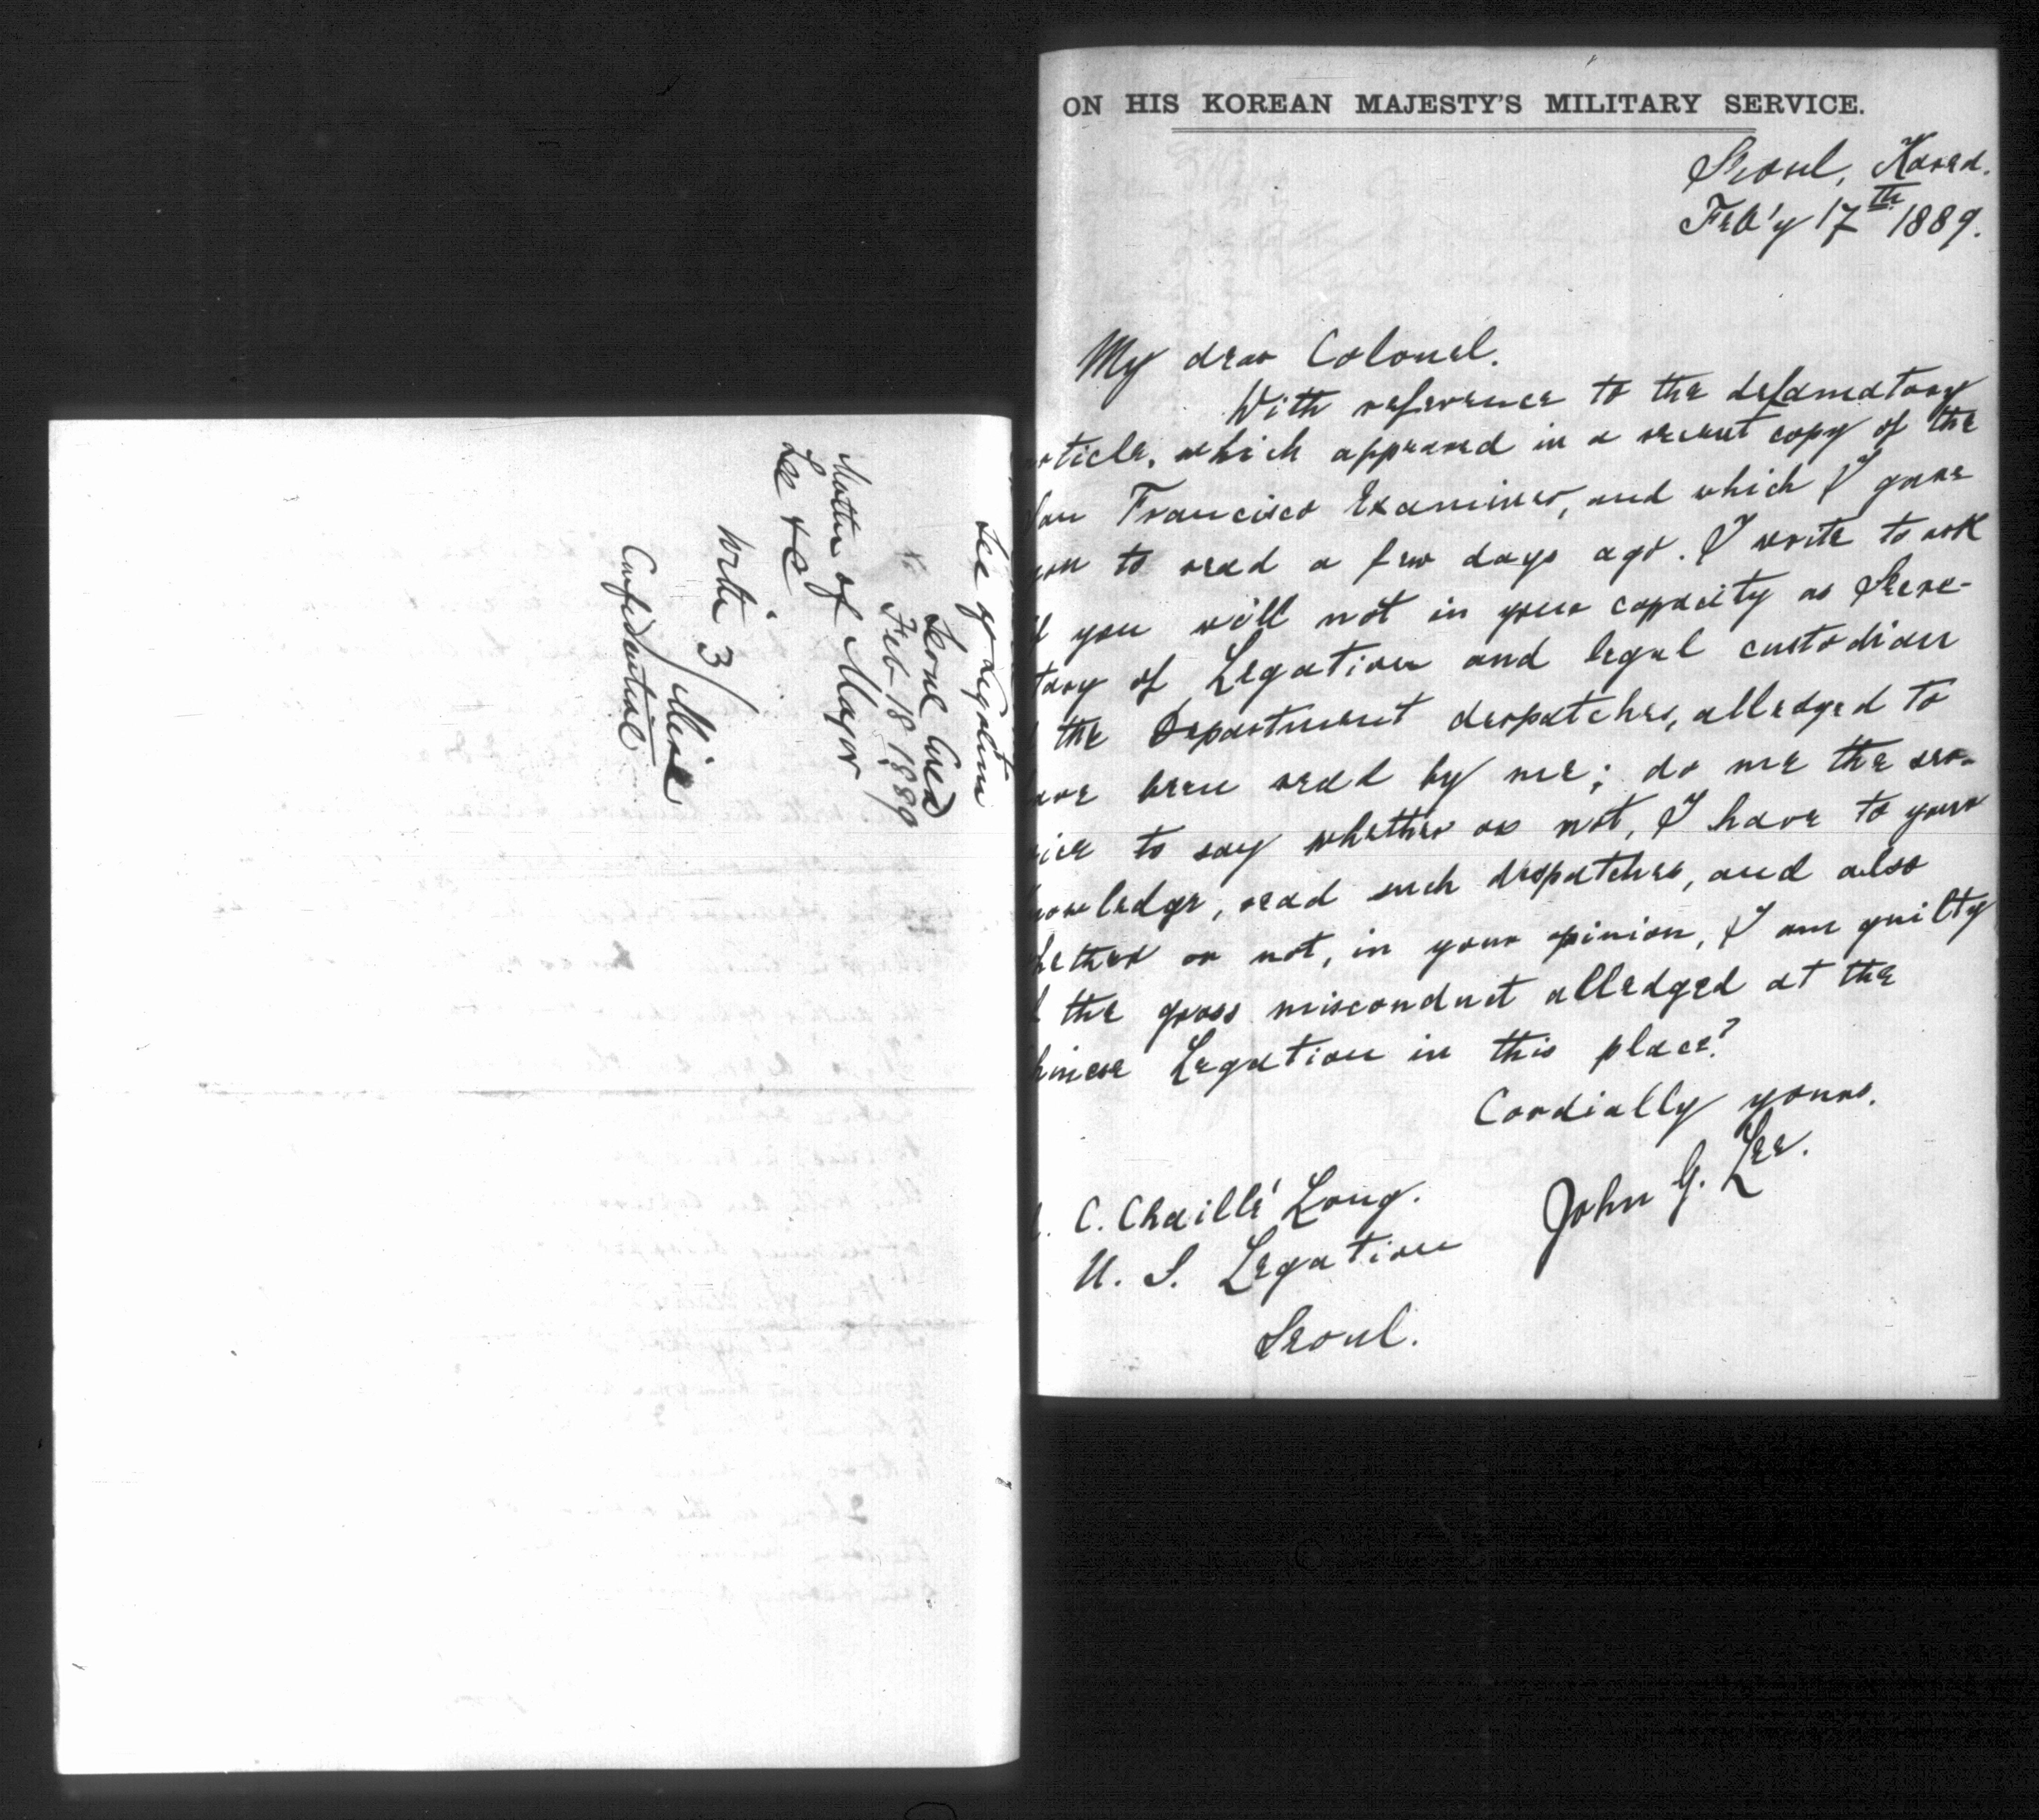 Sec of Legation
Seoul Corea
Feb 18 1889
Matter of Major
Lee &c
with 3/ Misc
Confidential
ON HIS KOREAN MAJESTY'S MILITARY SERVICE.
Seoul, Korea.
Feb'y 17th 1889.
My dear Colonel.
With reference to the defamatory
article, which appeared in a recent copy of the
San Francisco Examiner, and which I gave
you to read a few days ago. I write to ask
if you will not in your capacity as Secre-
tary of Legation and legal custodian
the Department despatches, alledged to
have been read by me; do me the ser-
vice to say whether or not, I have to your
knowledge, read such despatches, and also
whether or not, in your opinion, I am guilty
the gross misconduct alledged at the
Chinese Legation in this place?
Cordially yours.
John G. Lee.
C. Chaillé Long.
U. S. Legation
Seoul.